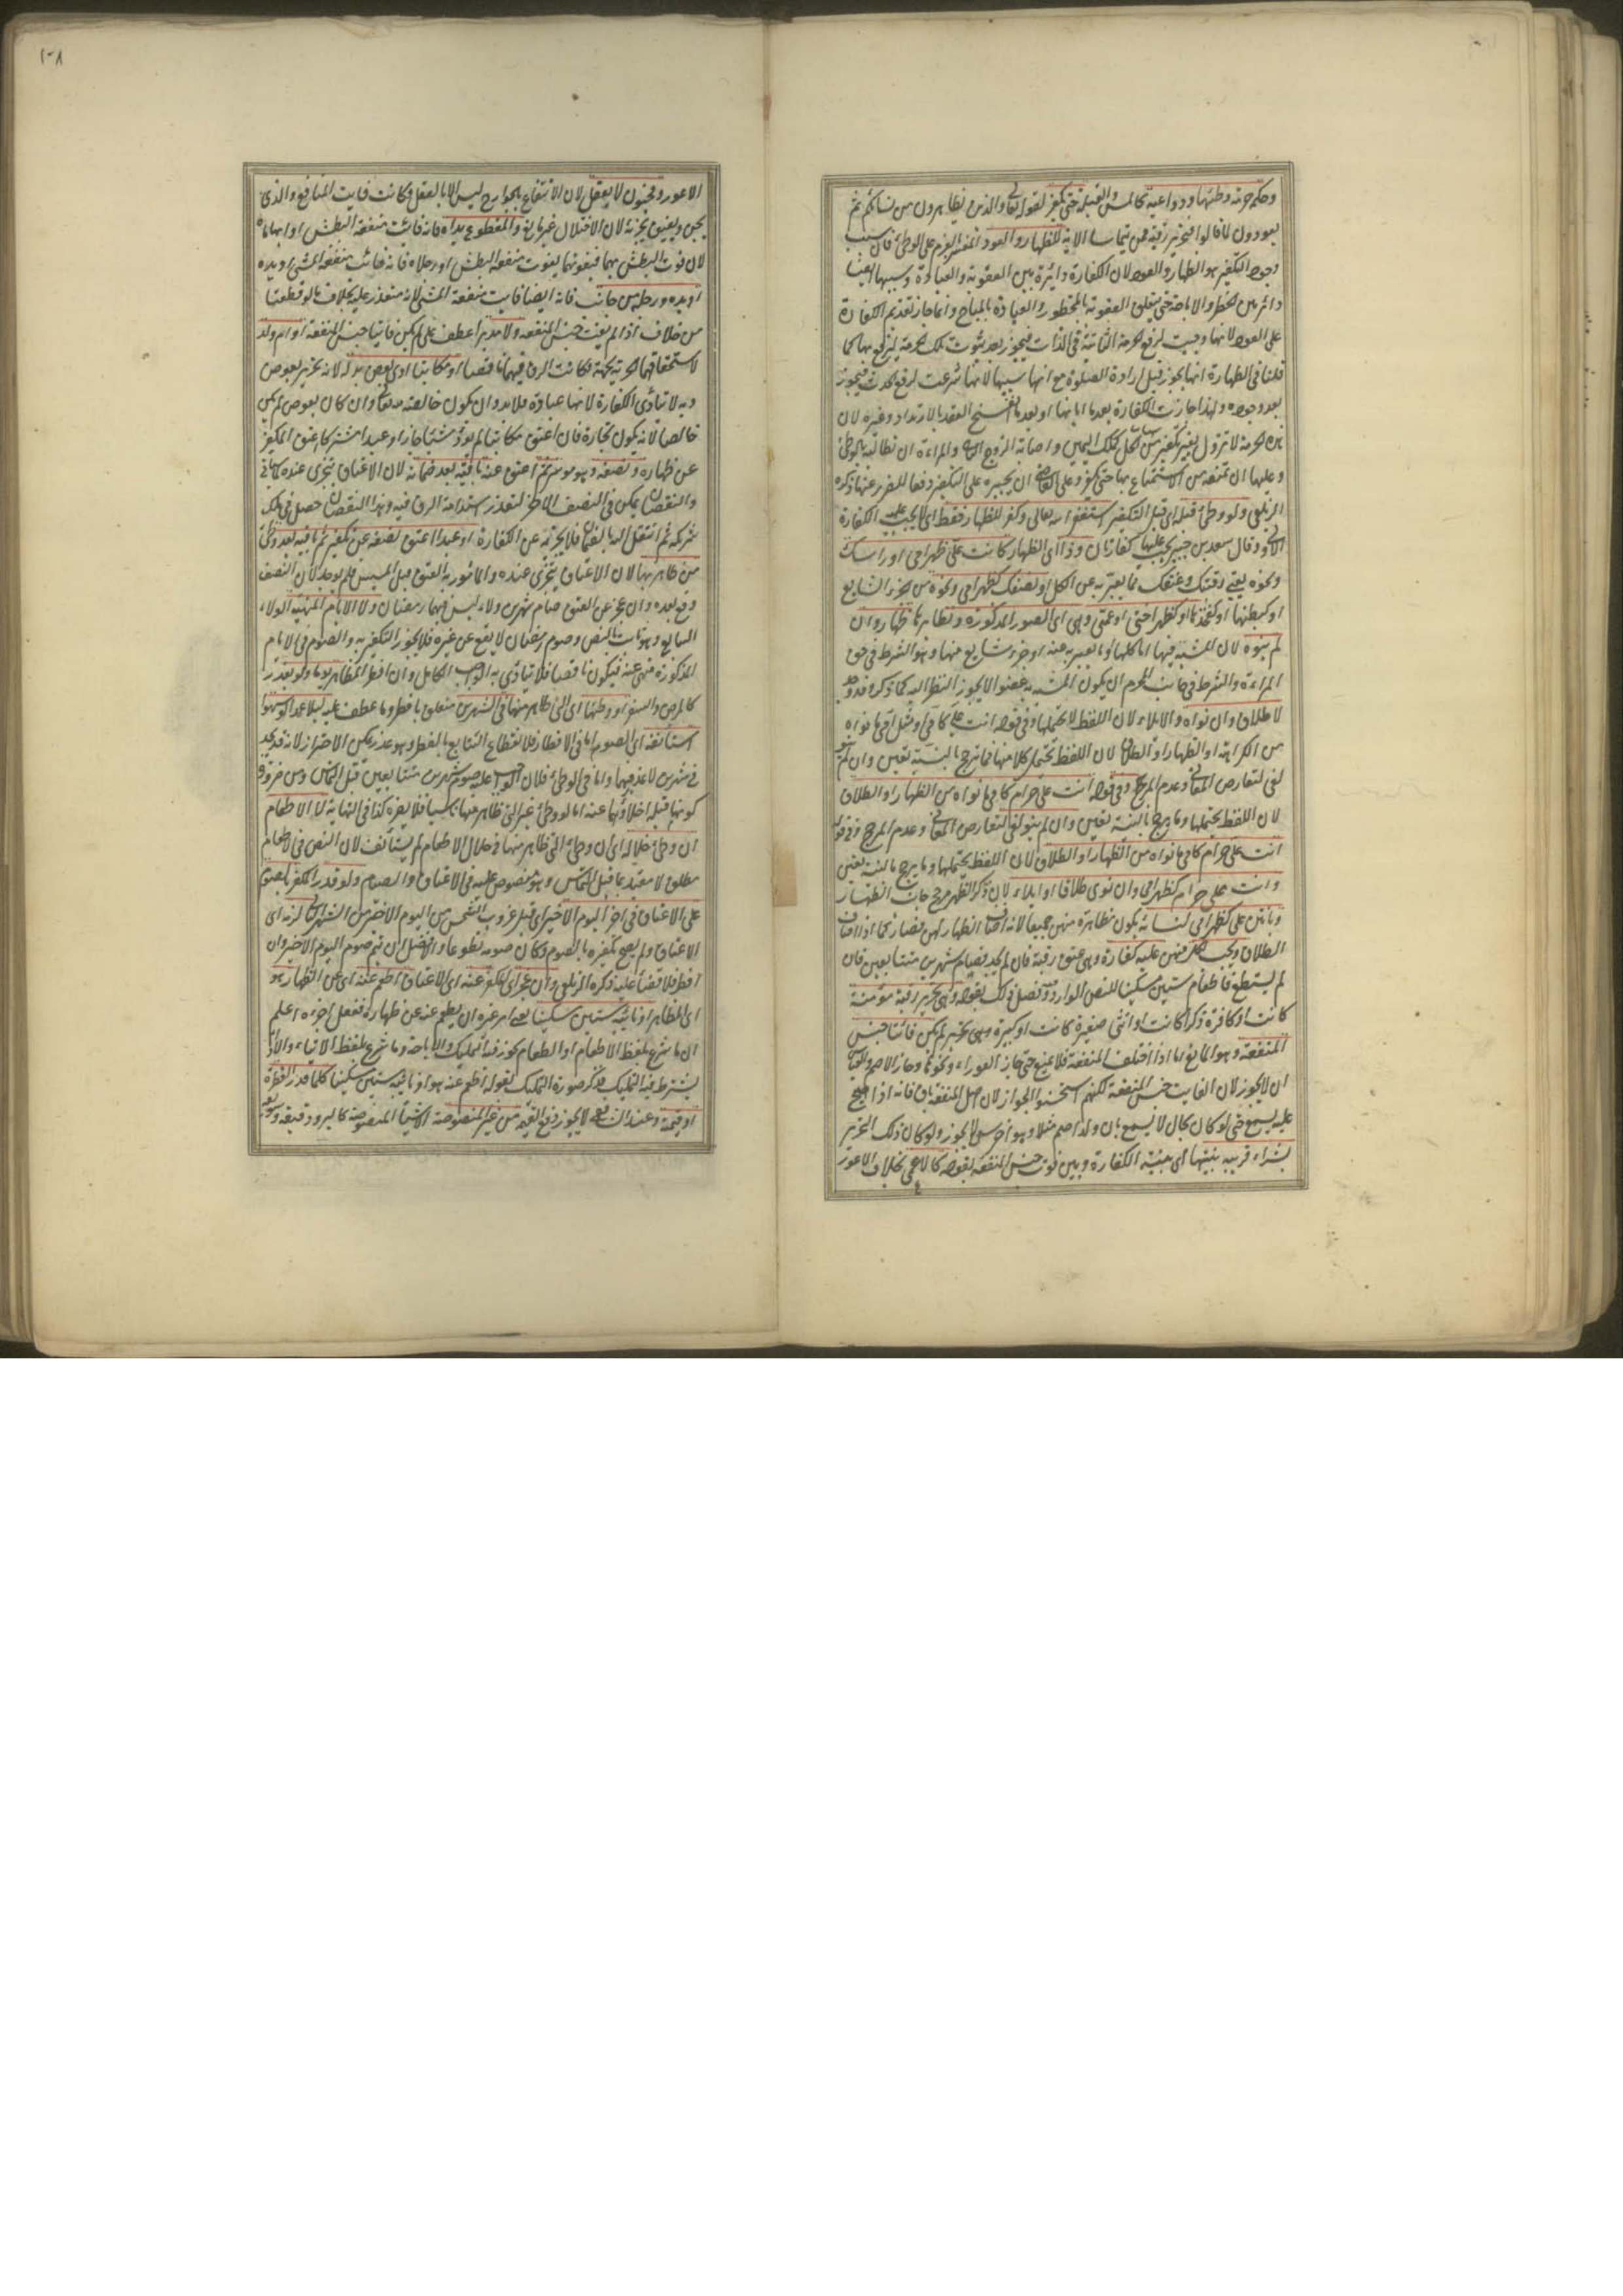 وحكمه حرمة وطئها ودواعيه كالمس والقبلة حتى يكفر لقوله تعالى والذين يظاهرون من نسائهم ثم
يعودون لما قالوا فتحرير رقبة من قبل ان يتماسا الاية للظهار والعود العزم على الوطئ سبب
وجوب التكفير هو الظهار والعود لان الكفارة دائرة بين العقوبة والعبادة وسببها ايضا
دائر بين الحظر والاباحة حتى يتعلق العقوبة بالمحظور والعبادة بالمباح وانما جاز تقديم الكفارة
على العود لانها وجبت لرفع الحرمة الثابتة في الذات فيجوز بعد ثبوت تلك الحرمة ليرفع بها كما
قلنا في الطهارة انها يجوز قبل ارادة الصلوة مع انها سببها لانها شرعت لرفع الحدث فيجوز
بعد وجوده ولهذا جازت الكفارة بعد ما ابانها او بعد ما انفسخ العقد بالارتداد وغيره لان
هذه الحرمة لا تزول بغير تكفير من ملك اليمين واصابة الزوج الثاني وللمرأة ان تطالبه بالوطئ
وعليها ان تمنعه من الاستمتاع بها حتى يكفر وعلى القاضي ان يجبره على التكفير دفعا للضرر عنها ذكره
الزيلعي ولو وطئ قبله اي قبل التكفير استغفر الله تعالى وكفر للظهار فقط اي لا يجب عليه الكفارة
الاولى وقال سعيد بن جبير يجب عليه كفارتان وذا اي الظهار كانت علي ظهر امي او رأسك
ونحوه يعني رقبتك وعنقك مما يعبر به عن الكل او نصفك كظهر امي ونحوه من الجزء الشايع
او كبطنها او كفخذها او كظهر اختي او عمتي وهي اي الصور المذكورة ونظايرها ظهار وان
لم ينوه لان المشبه فيها اما كلها او ما يعبر به عنه او جزء شايع منها وهو الشرط في حق
المرأة والشرط في جانب المحرم ان يكون المشبه به عضوا لا يجوز النظر اليه كما ذكره وقد وجد
لا طلاق وان نواه والايلاء لان اللفظ لا يحتملها وفي قوله انت علي كامي او مثل امي ما نواه
من الكرامة او الظهار او الطلاق لان اللفظ يحتمل كلا منها فما ترجح بالنية تعين وان لم ينو
لغي لتعارض المعاني وعدم المرجح وفي قوله انت علي حرام كامي ما نواه من الظهار او الطلاق
لان اللفظ يحتملها وما يرجح بالنية تعين وان لم ينو لغي لتعارض المعاني وعدم المرجح وفي قوله
انت علي حرام كامي ما نواه من الظهار او الطلاق لان اللفظ يحتملها وما يرجح بالنية تعين
وانت علي حرام كظهر امي وان نوى طلاقا او ايلاء لان ذكر الظهر مرجح جانب الظهار
وبانتن علي كظهر امي لنسائه يكون مظاهرة منهن جميعا لانه اضاف الظهار لهن فصار كما اذا اضاف
الطلاق ويجب لكل منهن عليه كفارة وهي عتق رقبة فان لم يجد فصيام شهرين متتابعين فان
لم يستطع فاطعام ستين مسكينا للنص الوارد وفصل ذلك بقوله وهي تحرير رقبة مؤمنة
كانت او كافرة ذكرا كانت او انثى صغيرة كانت او كبيرة وهي بحيث لم يكن فائتا جنس
المنفعة وهو المانع اما اذا اختلف المنفعة فلا يمنع حتى جاز العوراء ونحوها وجاز الاصم والقياس
ان لا يجوز لان الفايت جنس المنفعة لكنهم استحسنوا الجواز لان اصل المنفعة باق فانه اذا صيح
عليه يسمع حتى لو كان بحال لا يسمع بان ولد اصم مثلا وهو اخرس لا يجوز ولو كان ذلك التحرير
بشراء قريبه بنيتها اي بنية الكفارة وبين فوت جنس المنفعة بقوله كالاعمى بخلاف الاعور
١٠٨
الاعور ومجنون لا يعقل لان الانتفاع بالجوارح ليس الا بالعقل وكانت فايت المنافع والذي
يجن ويفيق يجزئه لان الاختلال غير مانع والمقطوع يداه فانه فائت منفعة البطش او ابهاماه
لان قوة البطش بهما فبفوتهما يفوت منفعة البطش او رجلاه فانه فائت منفعة المشي او يده
او يده ورجله من جانب فانه ايضا فايت منفعة المشي لانه متعذر عليه بخلاف ما لو قطعتا
من خلاف اذا لم يفت جنس المنفعة ولا مدبر اعطف على لم يكن فايتا جنس المنفعة او ام ولد
لاستحقاقهما الحرية بجهة فكانت الرق فيهما ناقصا او مكاتبا ادى بعض بدله لانه تحرير بعوض
وبه لا تتأدى الكفارة لانها عبادة فلا بد وان يكون خالصة لله تعالى وان كان بعوض لم يكن
خالصا لانه يكون تجارة فان اعتق مكاتبا لم يؤد شيئا جاز او عبدا مشتركا اعتق المكفر
عن ظهاره نصفه وهو موسر ثم اعتق عنه باقيه بعد ضمانه لان الاعتاق يتجزى عنده كما في
والنقصان تمكن في النصف الاخر لتعذر استدامة الرق فيه وهذا النقصان حصل في ملك
شريكه ثم انتقل اليه بالضمان فلا يجزئه عن الكفارة او عبدا اعتق نصفه عن تكفير ثم باقيه بعد وطئ
من ظاهر بها لان الاعتاق يتجزى عنده والمأمور به العتق قبل المسيس فلم يوجد لان النصف
وقع بعده وان عجز عن العتق صام شهرين ولاء ليس فيهما رمضان ولا الايام المنهية الولاء
التتابع وهو ثابت بالنص وصوم رمضان لا يقع عن غيره فلا يجوز التكفير به والصوم في الايام
المذكورة منهي عنه فيكون ناقصا فلا يتأدى به الواجب الكامل وان افطر المظاهر يوما ولو بعذر
كالمرض والسفر او وطئها اي التي ظاهر منها في الشهرين متعلق بافطر وما عطف عليه ليلا عمدا او سهوا
استأنفه اي الصوم اما في الافطار فلانقطاع التتابع بالفطر وهو عذر يمكن الاحتراز لانه قد يجد
في شهرين لا عذر فيهما واما في الوطئ فلان الواجب عليه صوم شهرين متتابعين قبل التماس ومن ضرورة
كونها قبله اخلاؤهما عنه اما لو وطئ غير التي ظاهر منها ناسيا فلا يضره كذا في النهاية لا الاطعام
ان وطئ خلاله اي ان وطئ التي ظاهر منها في خلال الاطعام لم يستأنف لان النص في الاطعام
مطلق لا مقيد بما قبل التماس وهو منصوص عليه في الاعتاق والصيام ولو قدر المكفر بالصوم
على الاعتاق في اخر اليوم الاخير اي قبل غروب الشمس من اليوم الاخير من الشهر الثاني لزمه اي
الاعتاق ولم يصح تكفيره بالصوم وكان صومه تطوعا والافضل ان يتم صوم اليوم الاخير وان
افطر فلا قضاء عليه ذكره الزيلعي وان عجز اي المكفر عنه اي الاعتاق اطعم عنه اي عن الظهار هو
اي المظاهر او نائبه ستين مسكينا يعني امر غيره ان يطعم عنه عن ظهاره ففعل اجزءه اعلم
ان ما شرع بلفظ الاطعام او الطعام يجوز فيه التمليك والاباحة وما شرع بلفظ الايتاء والاداء
يشترط فيه التمليك فذكر صورة التمليك بقوله اطعم عنه هو او نائبه ستين مسكينا كلا قدر الفطرة
او قيمته وعند الشافعي لا يجوز دفع القيمة من غير المنصوصة الاشياء المنصوصة كالبر ودقيقه وسويقه